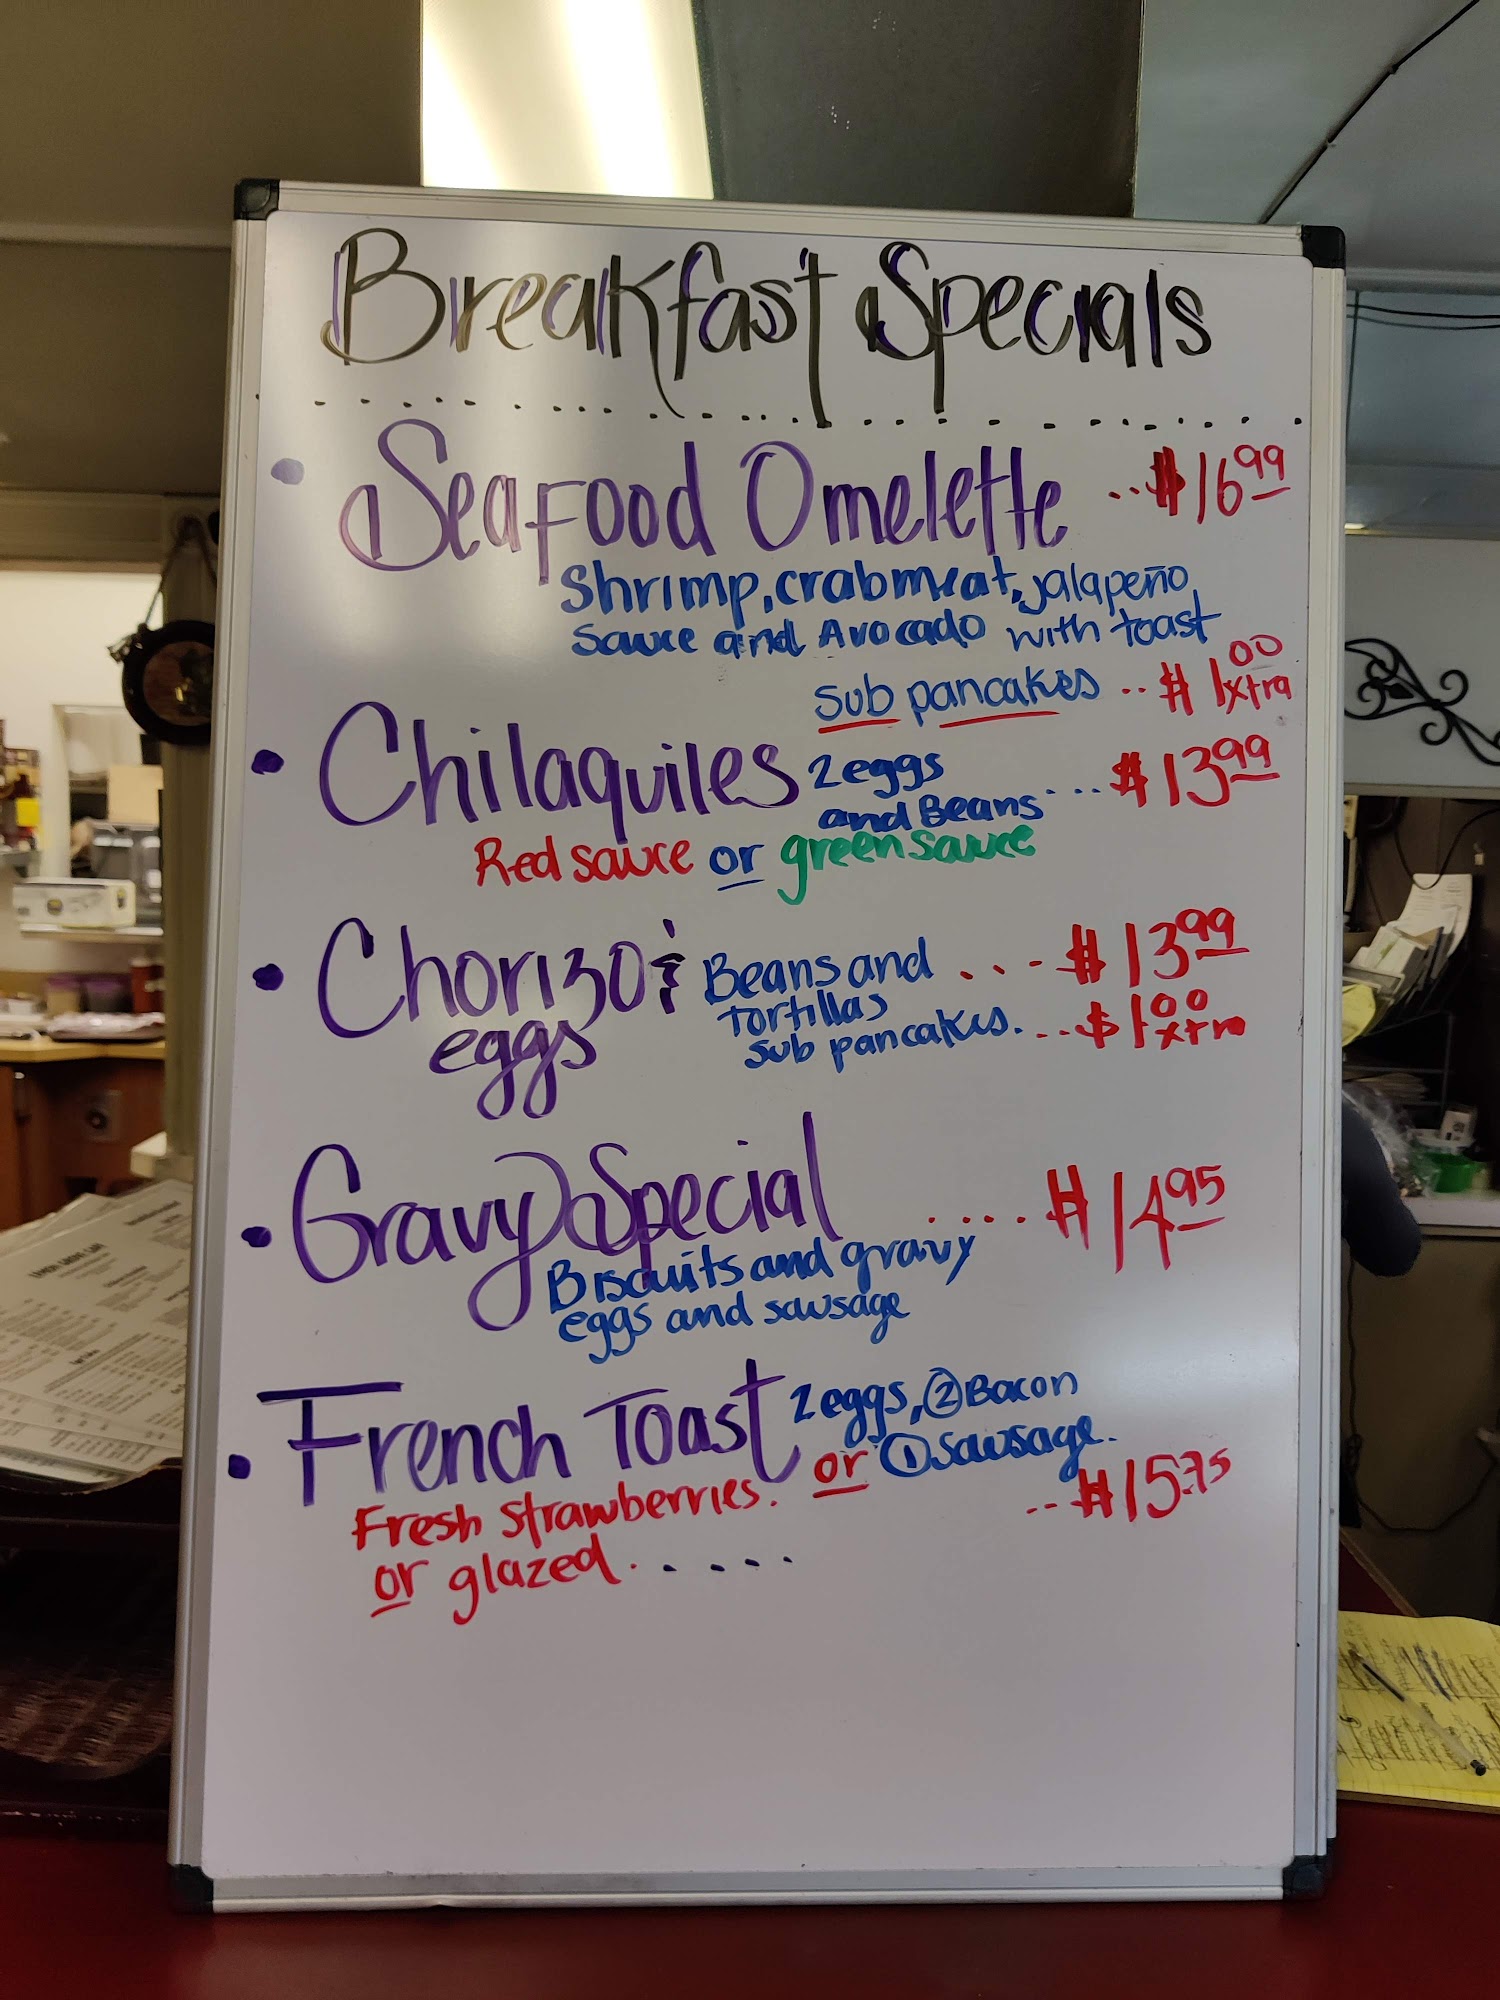 Breakfast Specials
• Seafood Omelette ..$16.99
Shrimp, crabmeat, jalapeño
sauce and Avocado with toast
sub pancakes .. $1.00 xtra
• Chilaquiles 2 eggs
and Beans ... $13.99
Red sauce or green sauce
• Chorizo & Beans and ... $13.99
eggs tortillas
sub pancakes. .. $1.00 xtra
• Gravy Special .... $14.95
Biscuits and gravy
eggs and sausage
• French Toast 2 eggs, ② Bacon
or ① sausage.
Fresh strawberries. .. $15.75
or glazed. . . . . .